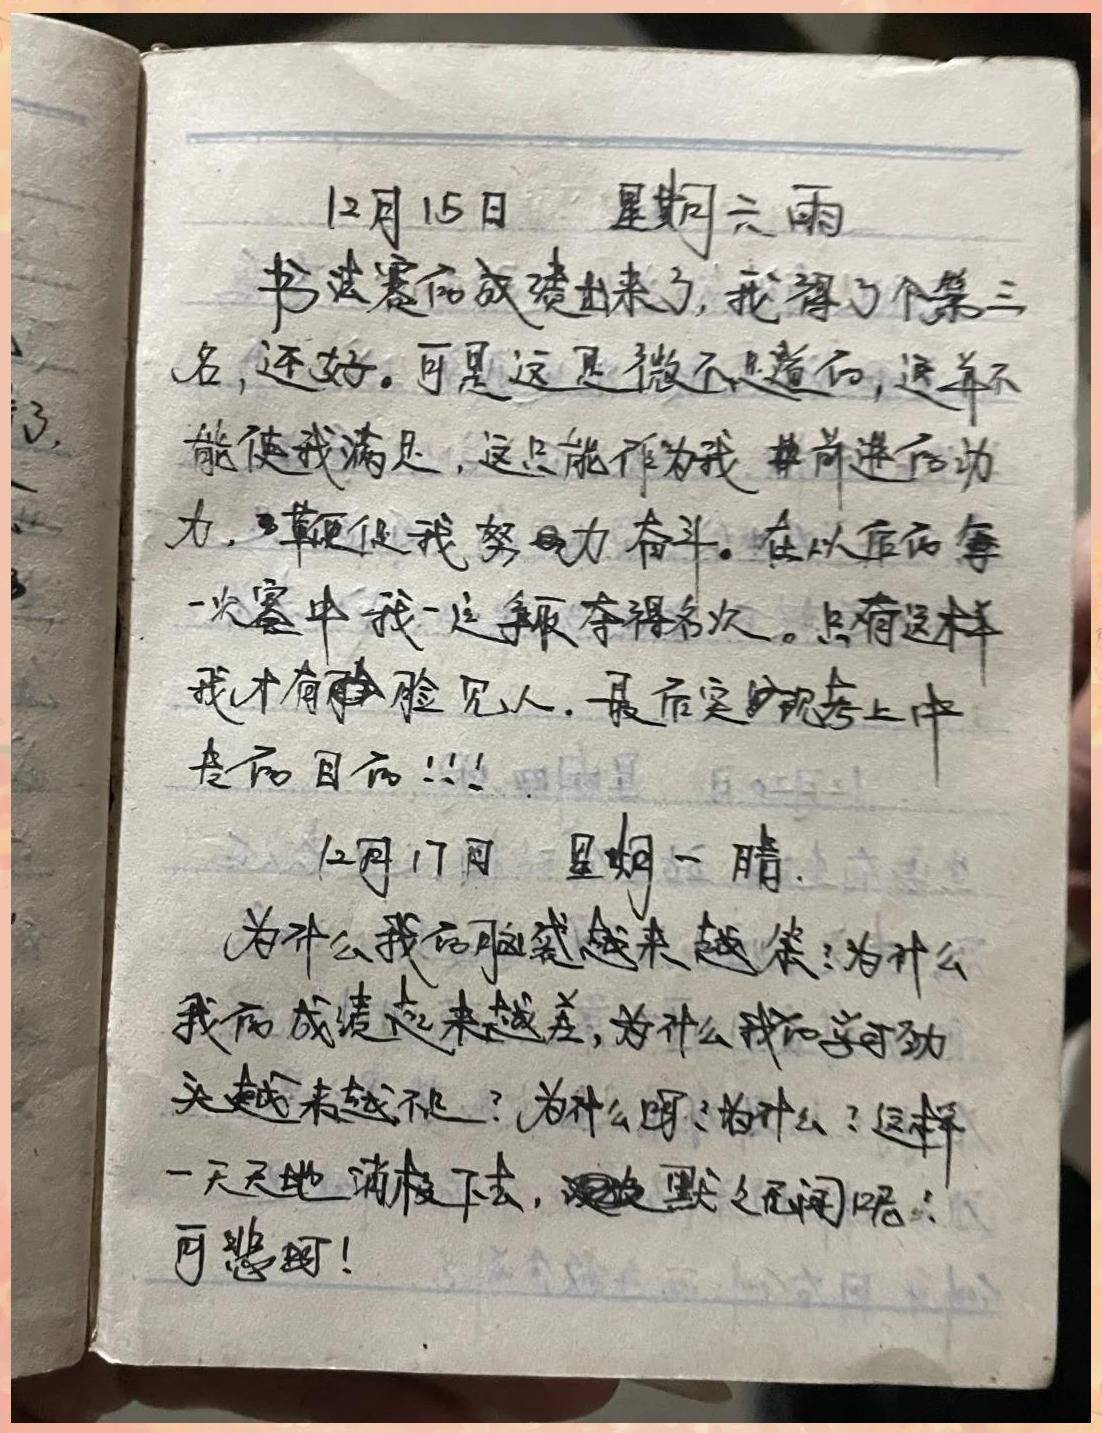 12月15日 星期六雨
书法赛的成绩出来了,我得了个第三
名,还好。可是这是微不足道的,这并不
能使我满足,这只能作为我前进的动
力,鞭促我努力奋斗。在以后的每
一次赛中我一定争取夺得名次。只有这样
我才有脸见人.最后实现考上中
专的目的!!!
12月17日 星期一 晴.
为什么我的脑袋越来越笨?为什么
我的成绩越来越差,为什么我的学习劲
头越来越不足?为什么呀?为什么?这样
一天天地消极下去,默默无闻呢?
可悲啊!
了,